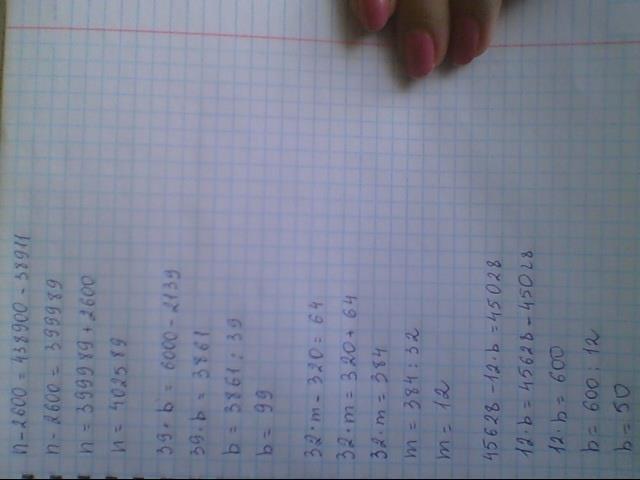 n - 2600 = 438900 - 38911
n - 2600 = 399989
n = 399989 + 2600
n = 402589
39 · b = 6000 - 2139
39 · b = 3861
b = 3861 : 39
b = 99
32 · m - 320 = 64
32 · m = 320 + 64
32 · m = 384
m = 384 : 32
m = 12
45628 - 12 · b = 45028
12 · b = 45628 - 45028
12 · b = 600
b = 600 : 12
b = 50